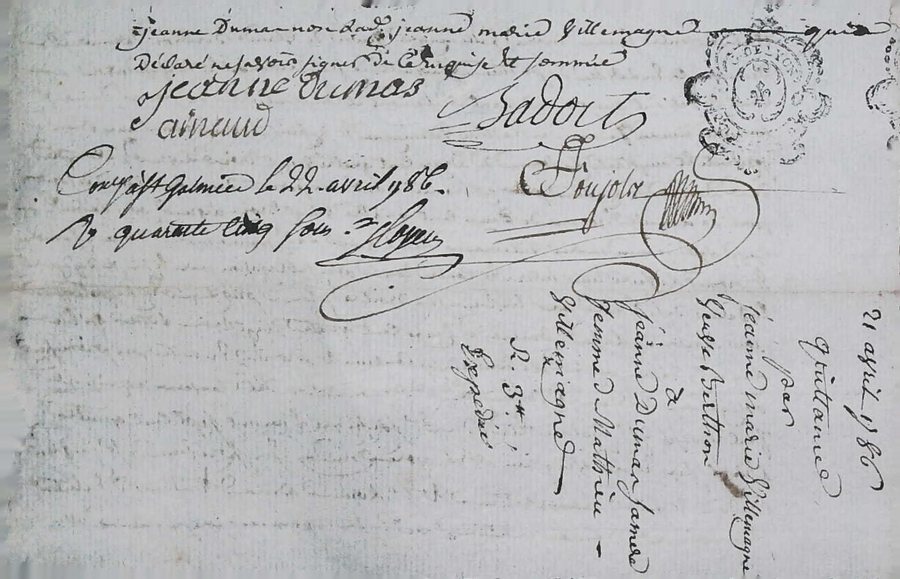 jeanne Dumas non Lad. jeanne marie Villemagne qui a
Déclaré ne savoir signer de Ce Enquise et sommée
jeanne dumas
arnaud
Badoit
Poujolz
Con.lé à St Galmier le 22 avril 1786.
R quarante cinq sous
21 avril 1786
Quittance
par
jeanne marie Villemagne
Veuve Berthon
à
jeanne Dumas sa mere
femme de Mathieu
Villemagne
R. 3tt
Expedié